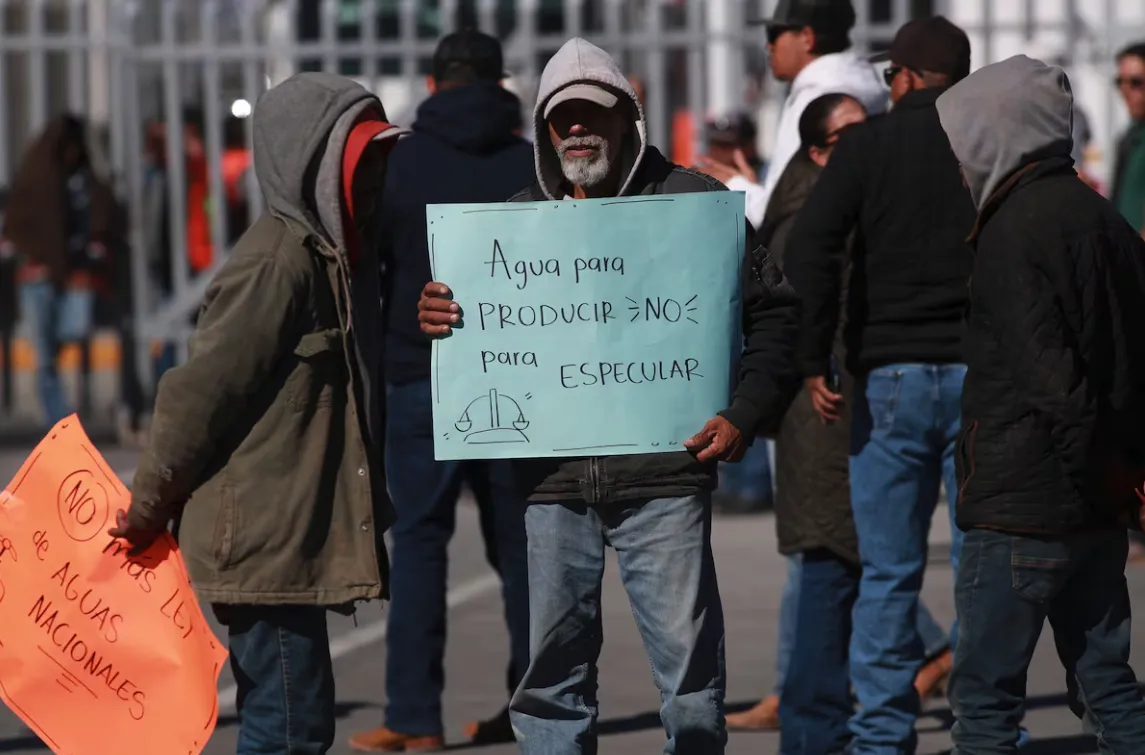 Agua para
PRODUCIR NO
para ESPECULAR
NO
mas LEY
de
AGUAS
NACIONALES